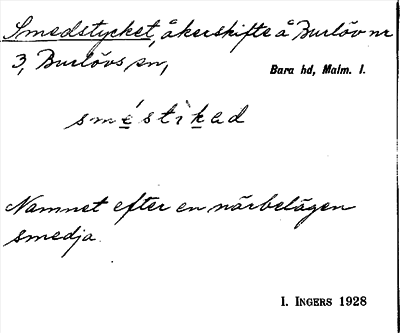 Smedstycket, åkerskifte å Burlöv nr
3, Burlövs sn,
Bara hd, Malm. l.
sméstìkad
Namnet efter en närbelägen
smedja.
I. INGERS 1928